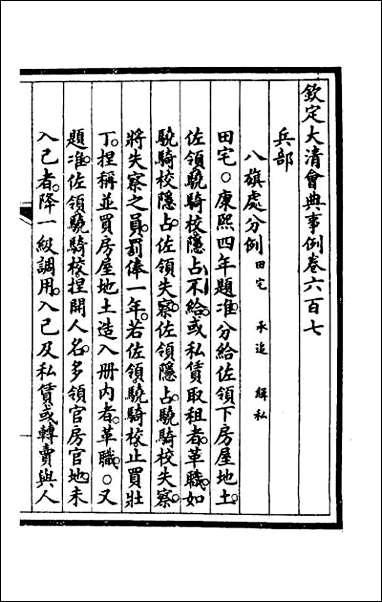 欽定大清會典事例卷六百七
兵部
八旗處分例 田宅 承追 緝私
田宅○康熙四年題准分給佐領下房屋地土。
佐領驍騎校隱占不給。或私賃取租者。革職。如
驍騎校隱占。佐領失察。佐領隱占。驍騎校失察。
將失察之員。罰俸一年。若佐領驍騎校。止買壯
丁。捏稱並買房屋地土造入册內者。革職。○又
題准佐領驍騎校。捏開人名。多領官房官地。未
入己者。降一級調用。入己及私賃或轉賣與人